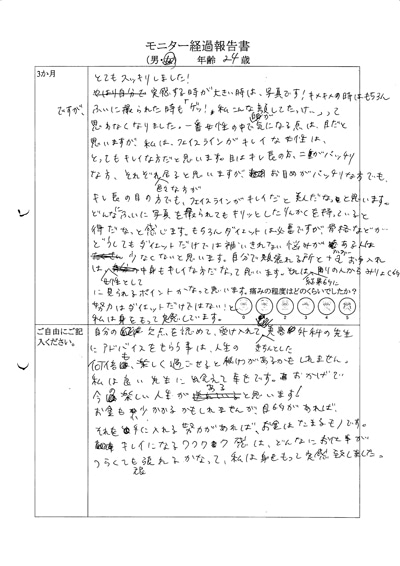 モニター経過報告書
(男・女) 年齢 24歳
3か月
とてもスッキリしました!
実感する時が大きい時は、写真です!キメキメの時はもちろん
ですが、ふいに撮られた時も「ゲッ!私こんな顔してたっけ…」って
思わなくなりました。一番女性の中で気になる点は、目だと
思いますが、私は、フェイスラインがキレイな女性は、
とってもキレイな方だと思います。目はキレ長の人、二重がパッチリ
な方、それぞれ居ると思いますが、お目めがパッチリな方でも、
キレ長の目の方でも、フェイスラインがキレイだと美人だなぁと思います。
どんなふいに写真を撮られてもキリッとした
得だなっと感じます。もちろんダイエットは必要ですが骨格などが…
どうしてもダイエットだけでは補いきれない悩みがある人は
少なくないと思います。自分で頑張れる所と+αお手入れ
は、女性として中身もキレイな方だなって思います。周りの人から
に見られるポイントかなって思います。
痛みの程度はどのくらいでしたか?
努力はダイエットだけではない!と
私は身をもって実感しています。
ご自由にご記入ください。
自分の欠点を認めて、受け入れて美容外科の先生
にアドバイスをもらう事は、人生の
何倍も楽しく過ごせると秘けつがあるかもしれません。
私は良い先生に出会えて幸せです。おかげで
今楽しい人生があると思います!
お金も少しかかるかもしれませんが、自分があれば、
それを手に入れる努力があれば、お金はたまるモノです。
キレイになるワクワク感は、どんなにお仕事が
つらくても頑張れるかなって、私は身をもって実感致しました。